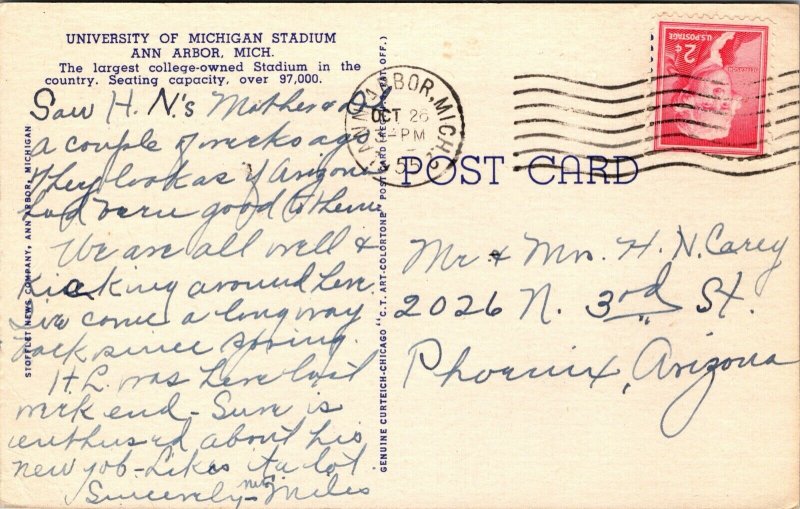 UNIVERSITY OF MICHIGAN STADIUM
ANN ARBOR, MICH.
The largest college-owned Stadium in the
country. Seating capacity, over 97,000.
Saw H. N.'s Mother & Dad
a couple of weeks ago
They look as if Arizona
had been good to them
We are all well &
kicking around here
I've come a long way
back since spring.
H. L. was here last
week end - Sure is
enthused about his
new job - Likes it a lot.
Sincerely - Miles
STOFFLET NEWS COMPANY, ANN ARBOR, MICHIGAN
GENUINE CURTEICH-CHICAGO "C.T. ART-COLORTONE" POST CARD (REG. U.S. PAT. OFF.)
ANN ARBOR, MICH.
OCT 26
3-PM
55
U.S. POSTAGE
2¢
JEFFERSON
POST CARD
Mr & Mrs. H. N. Carey
2026 N. 3rd St.
Phoenix, Arizona